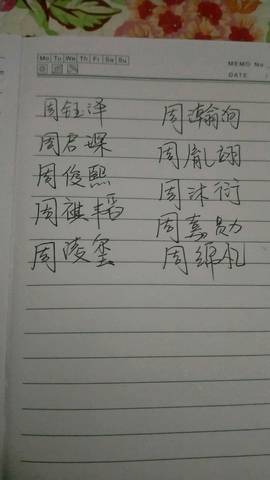 Mo Tu We Th Fr Sa Su
MEMO No.
DATE
周钰泽
周君琛
周俊熙
周祺韬
周陵玺
周瀚洵
周胤翊
周沐衍
周嘉勋
周锦礼